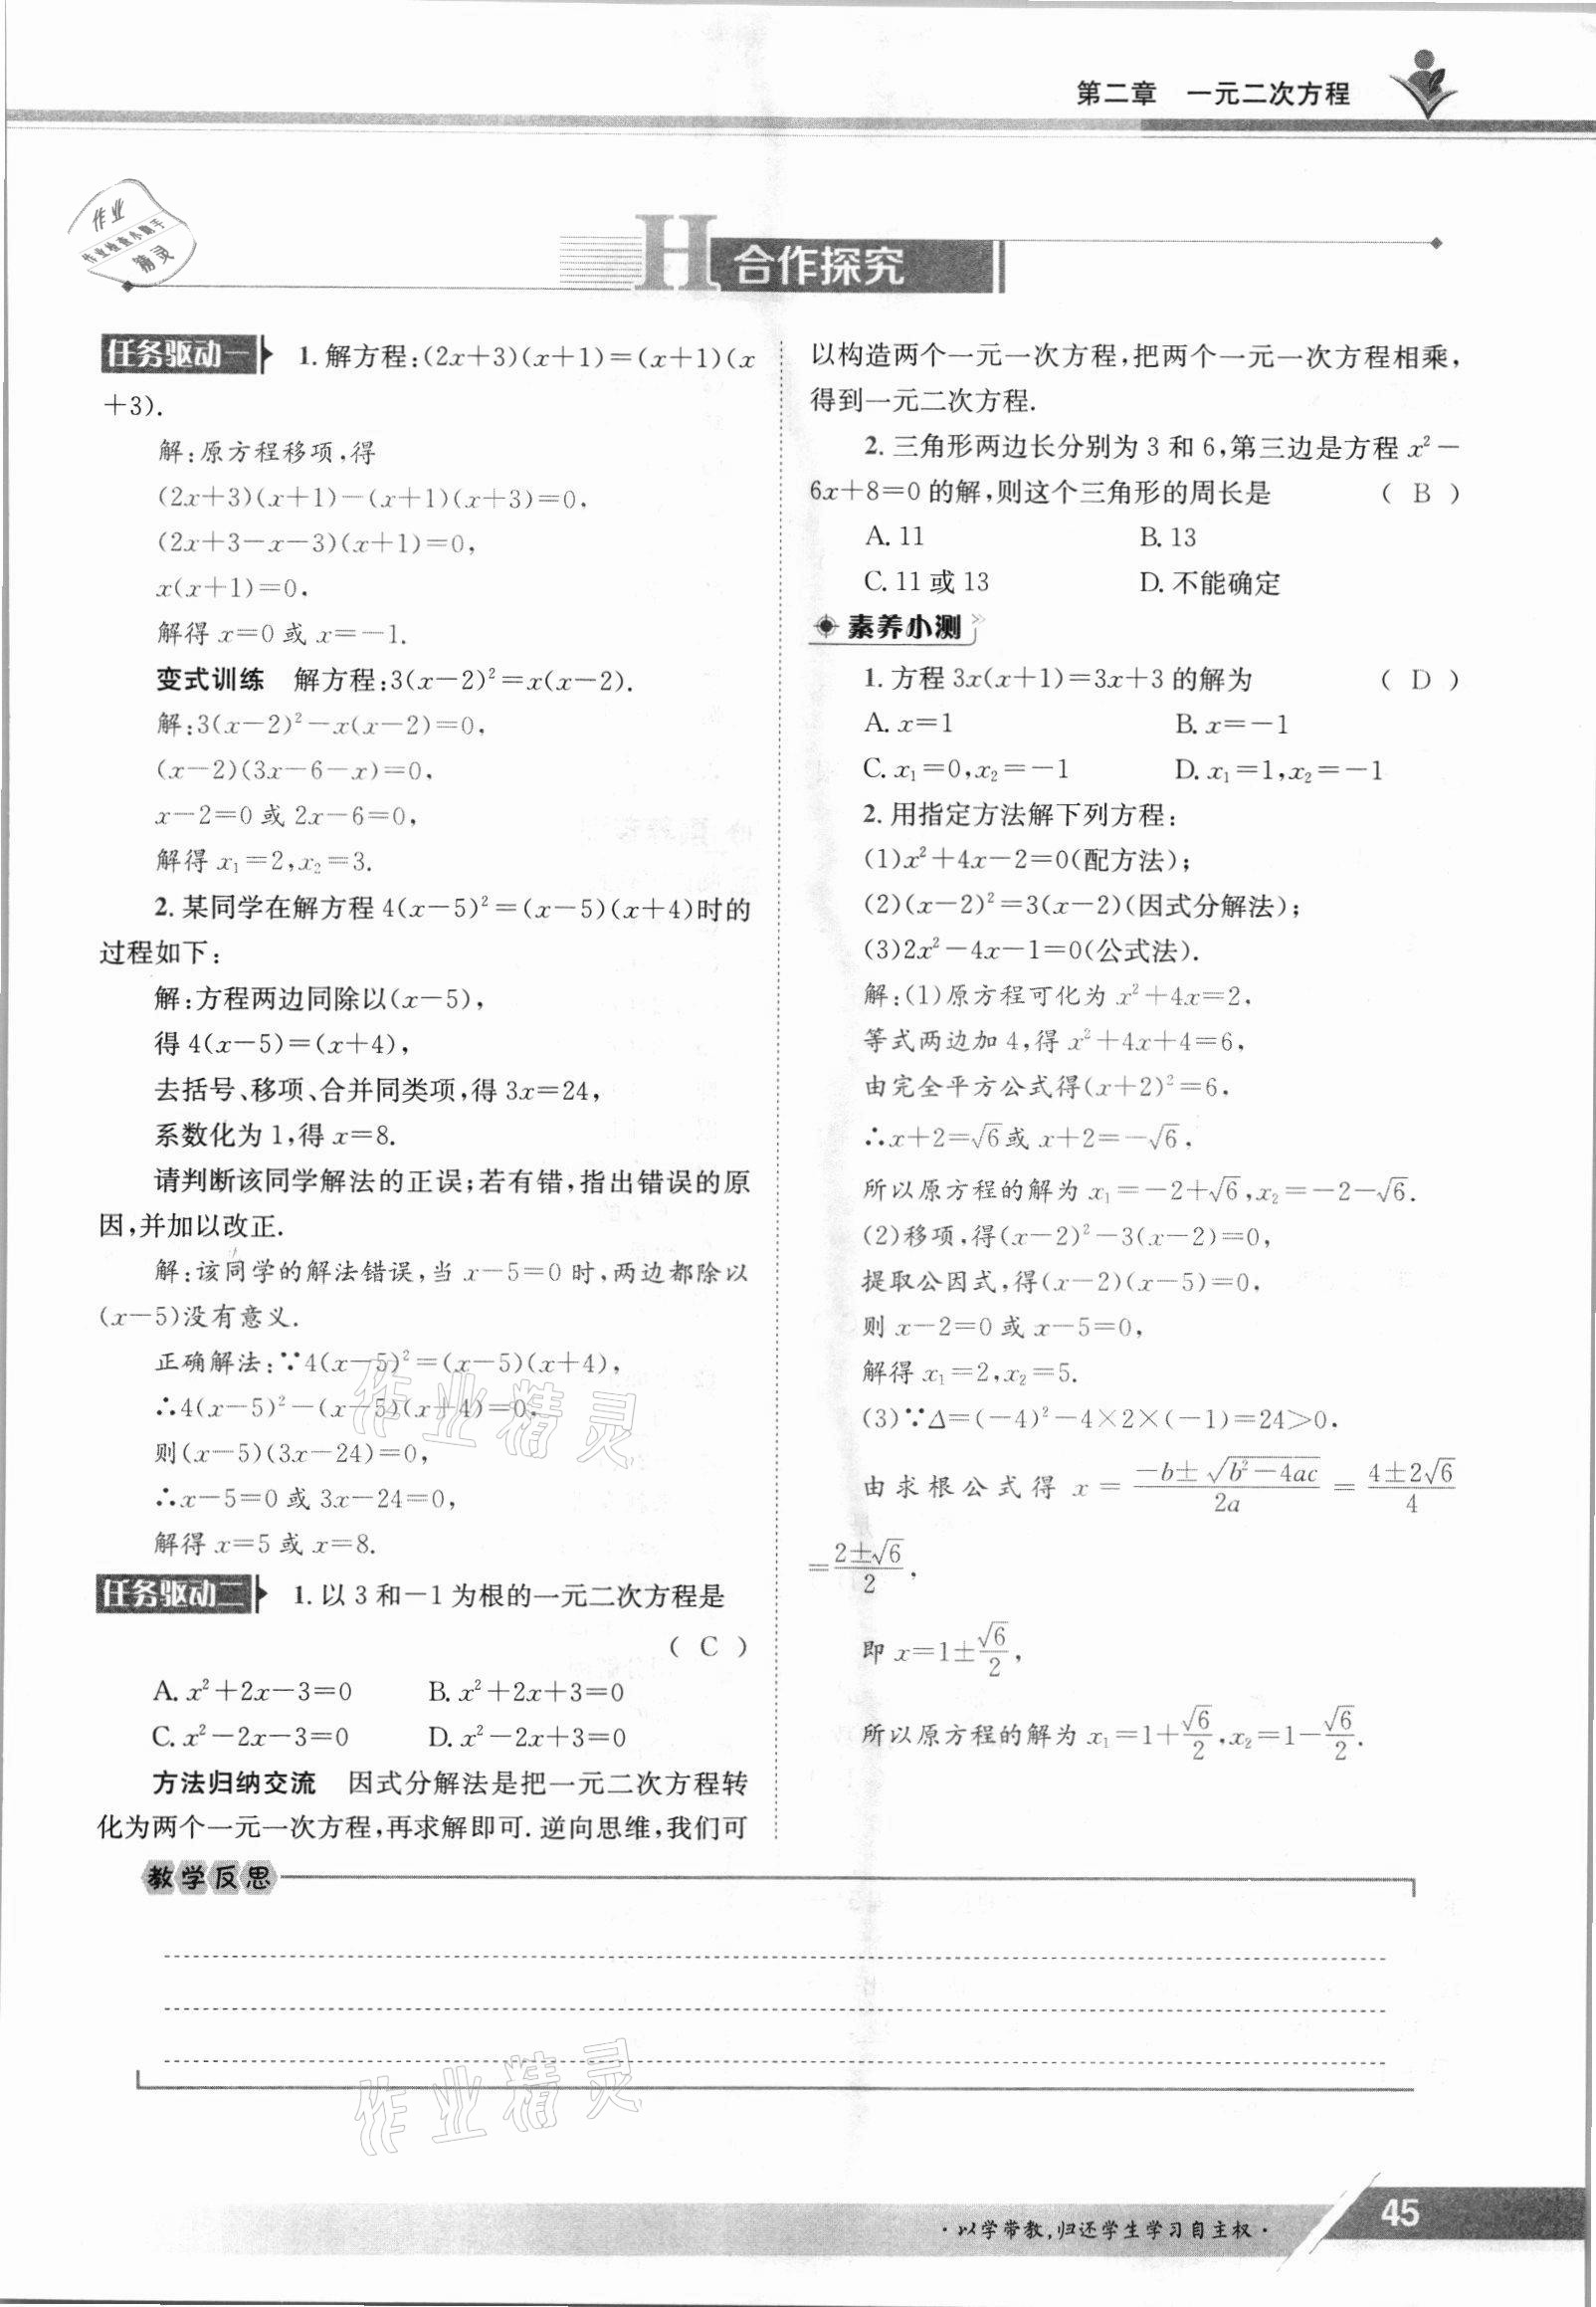 第二章 一元二次方程
作业
作业检查小助手
精灵
H 合作探究
任务驱动一 1. 解方程:(2x+3)(x+1)=(x+1)(x
+3).
解:原方程移项,得
(2x+3)(x+1)-(x+1)(x+3)=0.
(2x+3-x-3)(x+1)=0,
x(x+1)=0.
解得 x=0 或 x=-1.
变式训练 解方程:3(x-2)²=x(x-2).
解:3(x-2)²-x(x-2)=0,
(x-2)(3x-6-x)=0,
x-2=0 或 2x-6=0,
解得 x₁=2,x₂=3.
2. 某同学在解方程 4(x-5)²=(x-5)(x+4)时的
过程如下:
解:方程两边同除以(x-5),
得 4(x-5)=(x+4),
去括号、移项、合并同类项,得 3x=24,
系数化为 1,得 x=8.
请判断该同学解法的正误;若有错,指出错误的原
因,并加以改正.
解:该同学的解法错误,当 x-5=0 时,两边都除以
(x-5)没有意义.
正确解法:∵4(x-5)²=(x-5)(x+4),
∴4(x-5)²-(x-5)(x+4)=0,
则(x-5)(3x-24)=0,
∴x-5=0 或 3x-24=0,
解得 x=5 或 x=8.
任务驱动二 1. 以 3 和-1 为根的一元二次方程是
( C )
A. x²+2x-3=0 B. x²+2x+3=0
C. x²-2x-3=0 D. x²-2x+3=0
方法归纳交流 因式分解法是把一元二次方程转
化为两个一元一次方程,再求解即可. 逆向思维,我们可
以构造两个一元一次方程,把两个一元一次方程相乘,
得到一元二次方程.
2. 三角形两边长分别为 3 和 6,第三边是方程 x²-
6x+8=0 的解,则这个三角形的周长是 ( B )
A. 11 B. 13
C. 11 或 13 D. 不能确定
素养小测
1. 方程 3x(x+1)=3x+3 的解为 ( D )
A. x=1 B. x=-1
C. x₁=0,x₂=-1 D. x₁=1,x₂=-1
2. 用指定方法解下列方程:
(1)x²+4x-2=0(配方法);
(2)(x-2)²=3(x-2)(因式分解法);
(3)2x²-4x-1=0(公式法).
解:(1)原方程可化为 x²+4x=2,
等式两边加 4,得 x²+4x+4=6,
由完全平方公式得(x+2)²=6.
∴x+2=√6或 x+2=-√6,
所以原方程的解为 x₁=-2+√6,x₂=-2-√6.
(2)移项,得(x-2)²-3(x-2)=0,
提取公因式,得(x-2)(x-5)=0,
则 x-2=0 或 x-5=0,
解得 x₁=2,x₂=5.
(3)∵Δ=(-4)²-4×2×(-1)=24>0.
由求根公式得 x=(-b±√(b²-4ac))/2a=(4±2√6)/4
=(2±√6)/2.
即 x=1±√6/2,
所以原方程的解为 x₁=1+√6/2,x₂=1-√6/2.
作业精灵
教学反思
作业精灵
·以学带教,归还学生学习自主权·
45